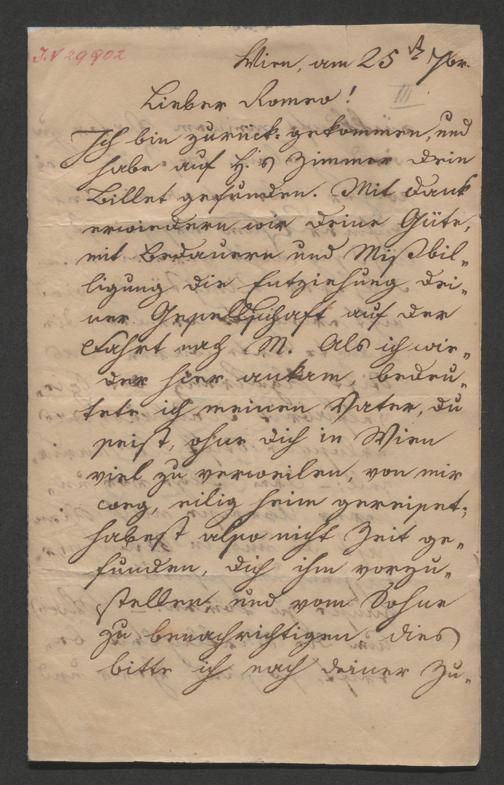 J.N 29902
Wien, am 25t 7br.
III
Lieber Romeo!
Ich bin zurück-gekommen, und
habe auf H.s Zimmer dein
Billet gefunden. Mit Dank
erwiedern wir deine Güte,
mit Bedauern und Mißbil-
ligung die Entziehung dei-
ner Gesellschaft auf der
Fahrt nach M. Als ich wie-
der hier ankam bedeu-
tete ich meinen Vater, du
seist, ohne dich in Wien
viel zu verweilen, von mir
weg eilig heim gereiset;
habest also nicht Zeit ge-
funden, dich ihm vorzu-
stellen und vom Sohne
zu benachrichtigen. Dies
bitte ich nach deiner Zu-